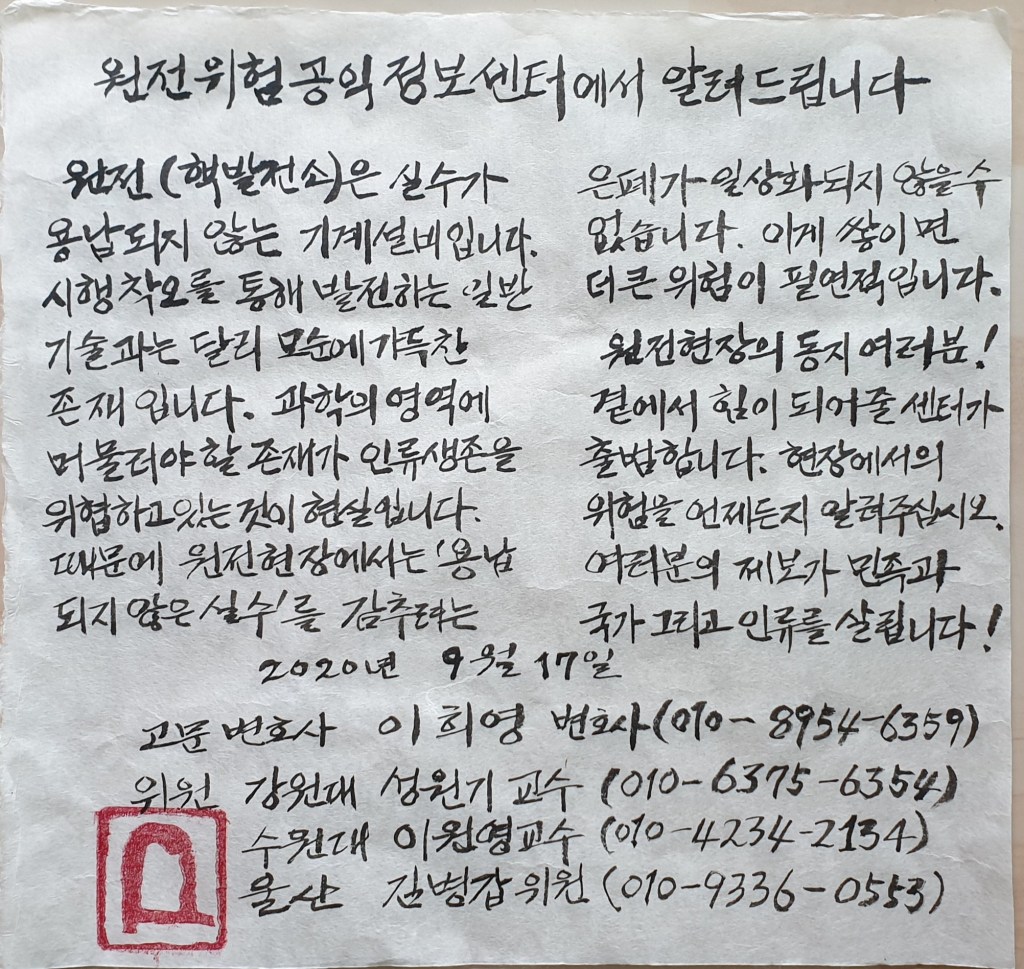 원전위험공익정보센터에서 알려드립니다
원전(핵발전소)은 실수가
용납되지 않는 기계설비입니다.
시행착오를 통해 발전하는 일반
기술과는 달리 모순에 가득찬
존재입니다. 과학의 영역에
머물러야 할 존재가 인류생존을
위협하고 있는 것이 현실입니다.
때문에 원전현장에서는 '용납
되지 않은 실수'를 감추려는
은폐가 일상화되지 않을 수
없습니다. 이게 쌓이면
더 큰 위험이 필연적입니다.
원전현장의 동지 여러분!
곁에서 힘이 되어줄 센터가
출범합니다. 현장에서의
위험을 언제든지 알려주십시오.
여러분의 제보가 민족과
국가 그리고 인류를 살립니다!
2020년 9월 17일
고문변호사 이희영 변호사(010-8954-6359)
위원 강원대 성원기 교수 (010-6375-6354)
수원대 이원영교수 (010-4234-2134)
울산 김병갑 위원 (010-9336-0553)